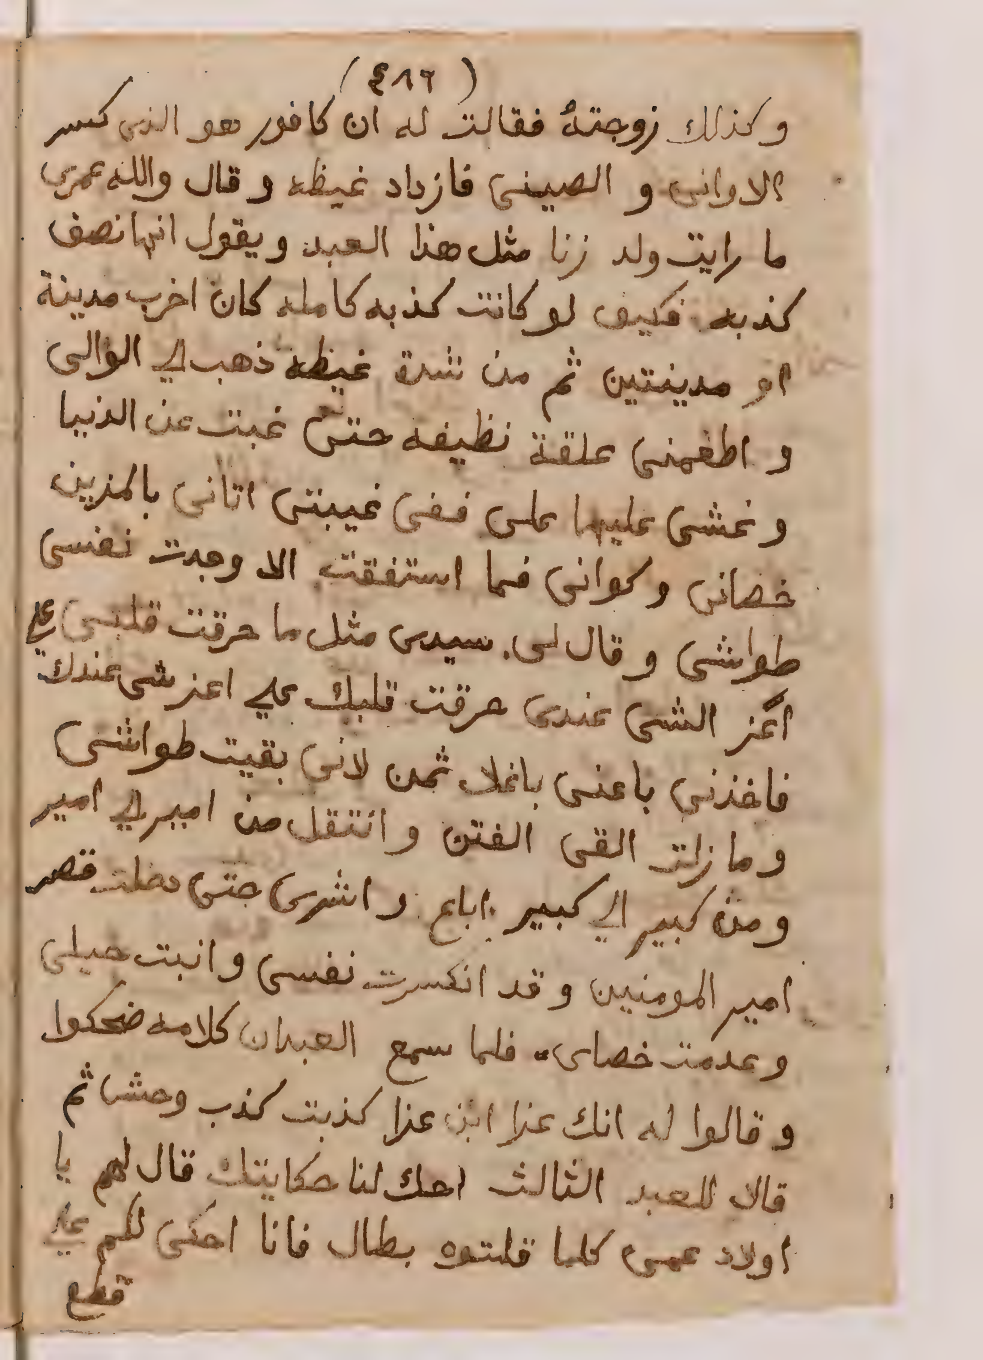 (٤٨٦)
وكذلك زوجته فقالت له ان كافور هو الذى كسر
الاوانى و الصينى فازداد غيظه و قال والله عمرى
ما رايت ولد زنا مثل هذا العبد و يقول انها نصف
كذبه فكيف لو كانت كذبه كامله كان اخرب مدينة
او مدينتين ثم من شدة غيظه ذهب الي الوالى
و اطعمنى علقة نظيفه حتى غبت عن الدنيا
و غشى عليها على ففى غيبتى اتانى بالمزين
خصانى و كوانى فما استفقت الا وجدت نفسى
طواشى و قال لى سيدى مثل ما حرقت قلبى علي
اعز الشى عندى حرقت قلبك علي اعز شى عندك
فاخذنى باعنى باغلا ثمن لانى بقيت طواشى
و ما زلت القى الفتن و انتقل من امير الي امير
و من كبير الي كبير اباع و اشرى حتى دخلت قصر
امير المومنين و قد انكسرت نفسى و انبت حيلى
و عدمت خصاى فلما سمع العبدان كلامه ضحكوا
و قالوا له انك عزا ابن عزا كذبت كذب وحش ثم
قالا للعبد الثالث احك لنا حكايتك قال لهم يا
اولاد عمى كلما قلتوه بطال فانا احكى لكم علي
قطع